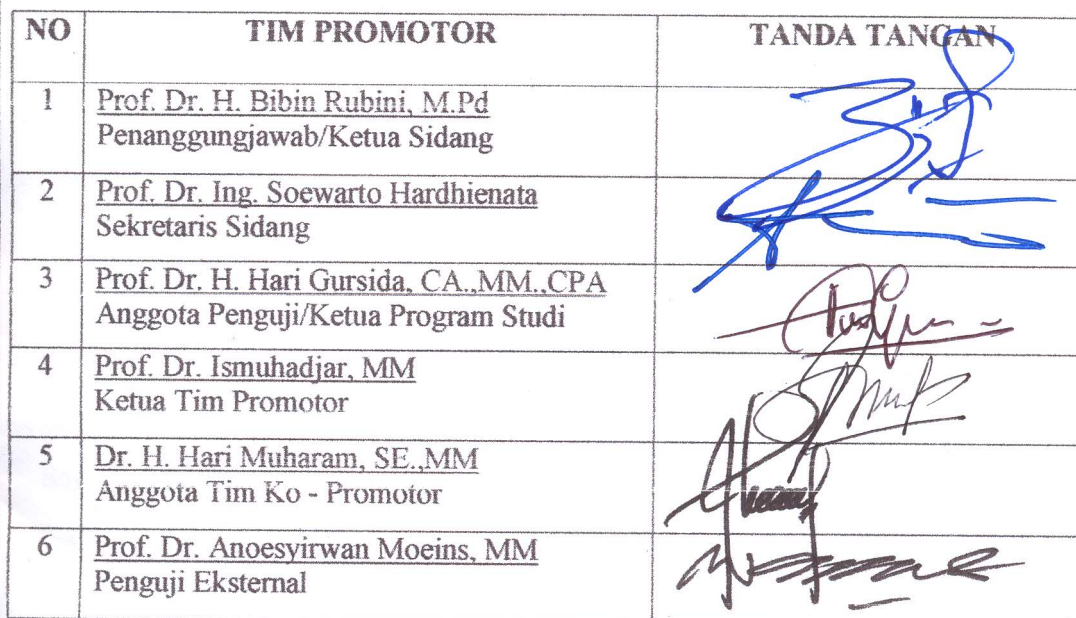 NO TIM PROMOTOR TANDA TANGAN
1 Prof. Dr. H. Bibin Rubini, M.Pd
Penanggungjawab/Ketua Sidang
2 Prof. Dr. Ing. Soewarto Hardhienata
Sekretaris Sidang
3 Prof. Dr. H. Hari Gursida, CA.,MM.,CPA
Anggota Penguji/Ketua Program Studi
4 Prof. Dr. Ismuhadjar, MM
Ketua Tim Promotor
5 Dr. H. Hari Muharam, SE.,MM
Anggota Tim Ko - Promotor
6 Prof. Dr. Anoesyirwan Moeins, MM
Penguji Eksternal